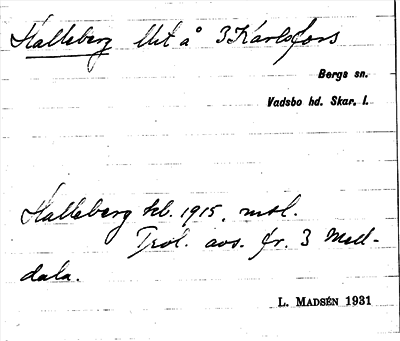 Halleberg lht å 3 Karlsfors
Bergs sn.
Vadsbo hd. Skar. l.
Halleberg hb. 1915, mtl.
Trol. avs. fr. 3 Mell-
dala.
L. MADSÉN 1931